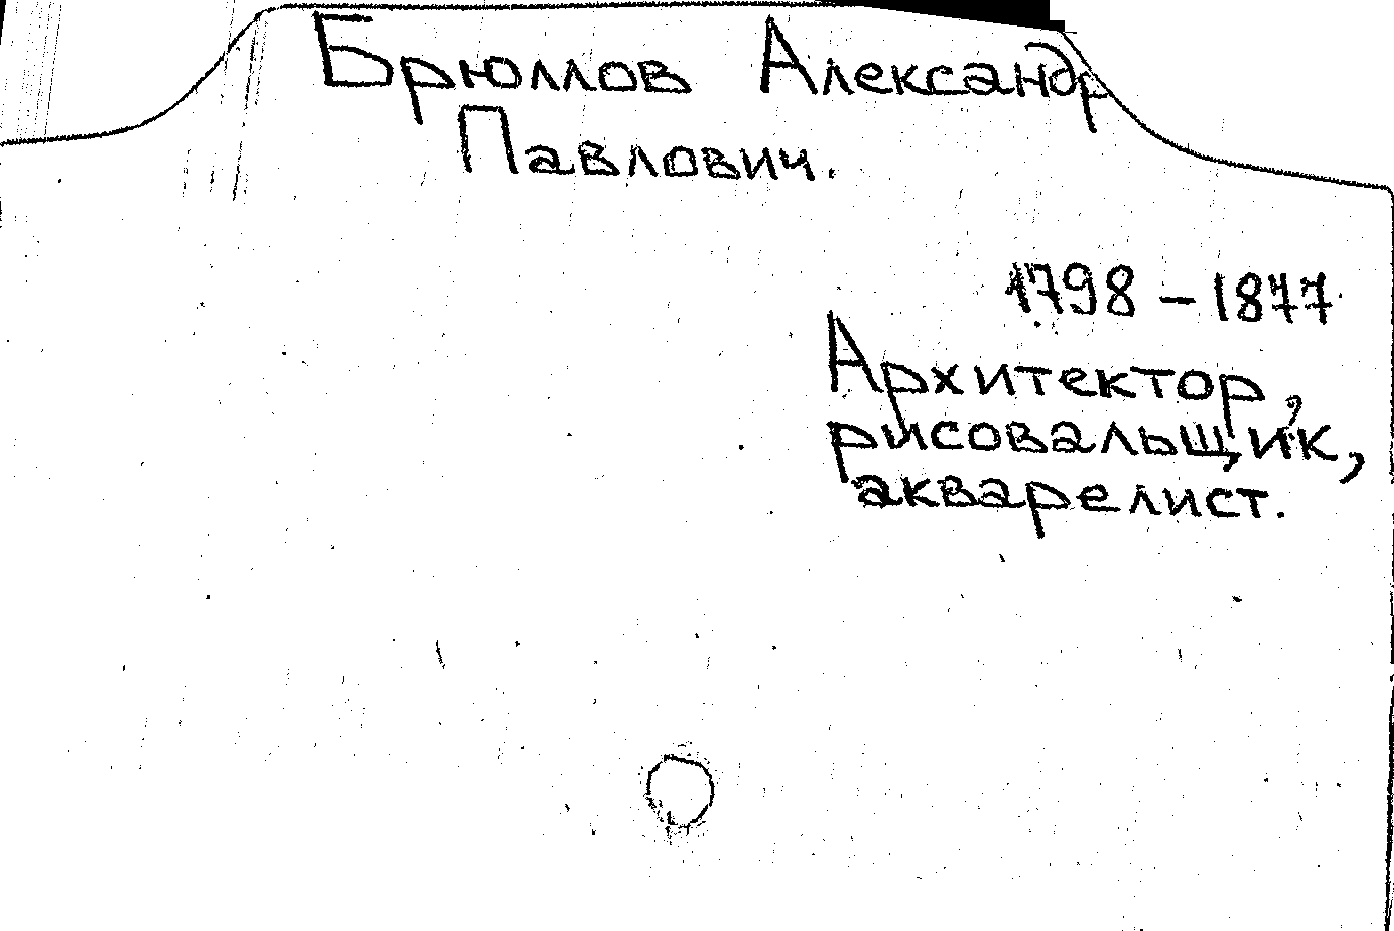 Брюллов Александр
Павлович.
1798 – 1877
Архитектор,
рисовальщик,
акварелист.